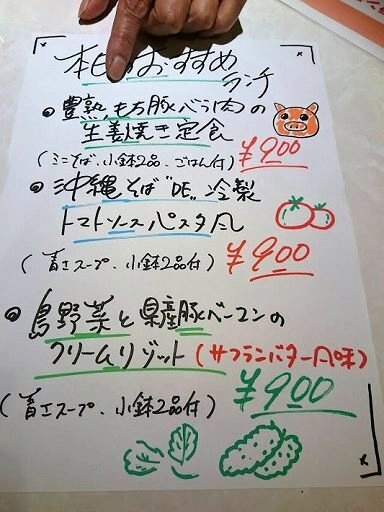 本日のおすすめ
ランチ
豊熟もち豚バラ肉の
生姜焼き定食
(ミニそば、小鉢2品、ごはん付)
¥900
沖縄そば"DE"冷製
トマトソースパスタ風
(着エスープ、小鉢2品付)
¥900
島野菜と県産豚ベーコンの
クリームリゾット(サフランバター風味)
¥900
(着エスープ、小鉢2品付)